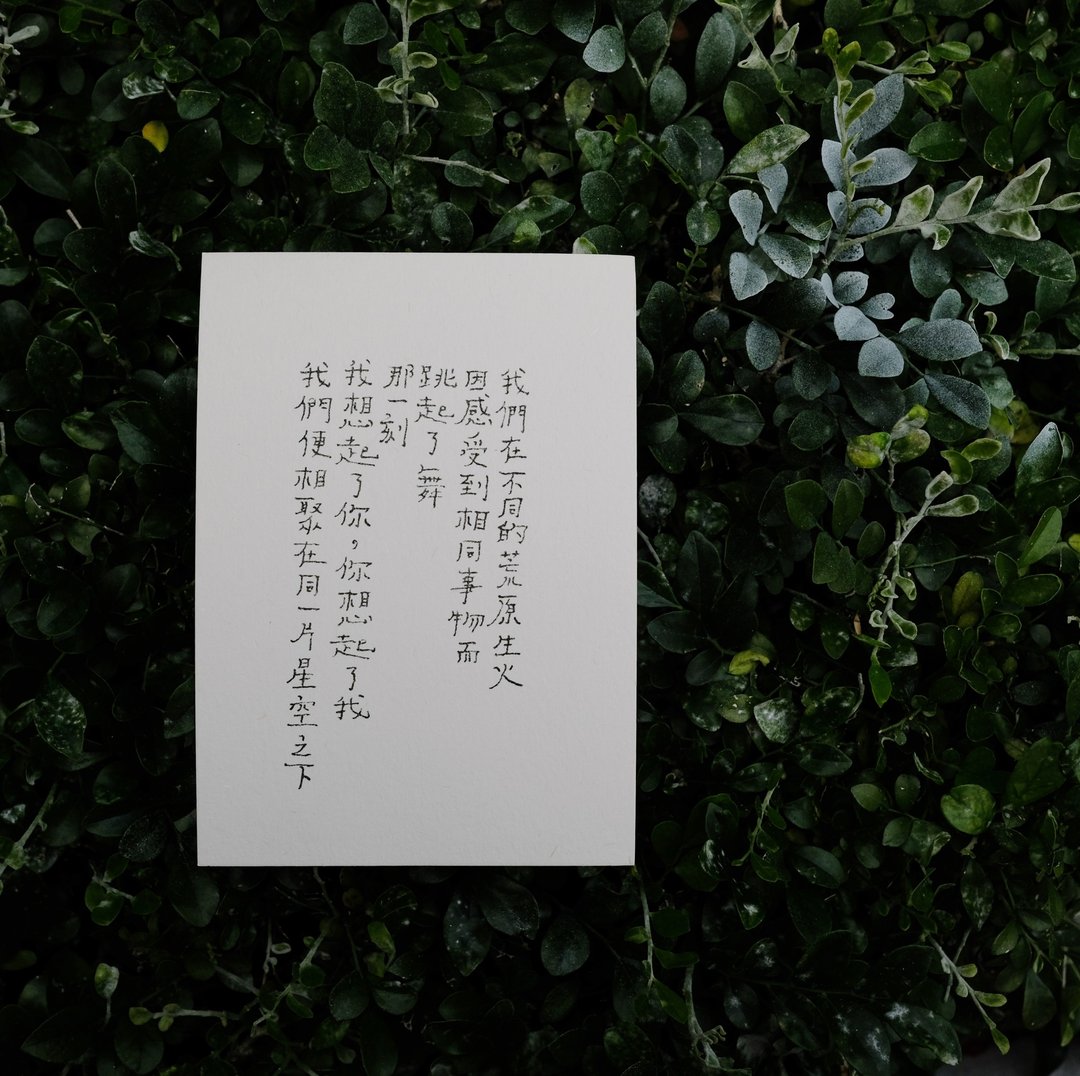 我們在不同的荒原生火
因感受到相同事物而
跳起了舞
那一刻
我想起了你，你想起了我
我們便相聚在同一片星空之下